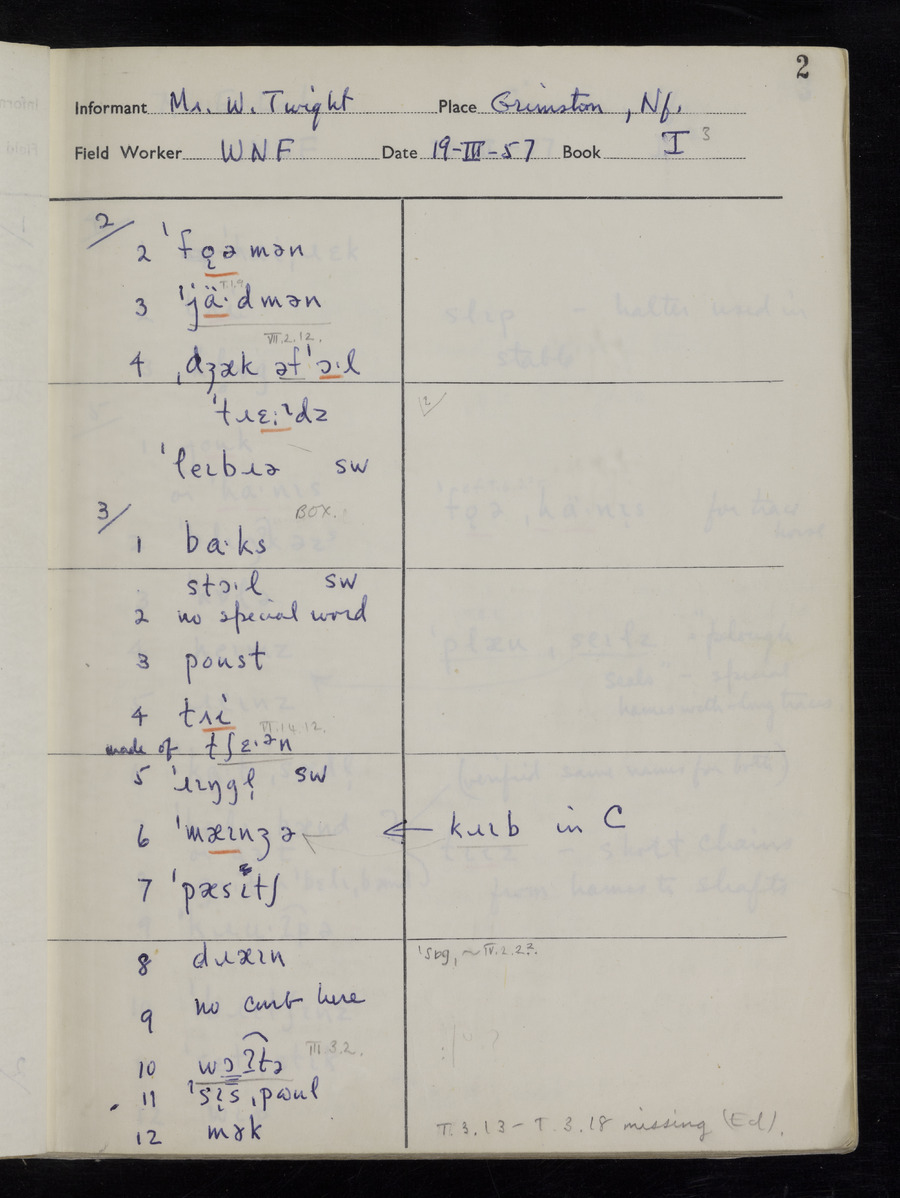 2
Informant Mr. W. Twight Place Grimston, Nf.
Field Worker WNF Date 19-III-57 Book I 3
2/
2 ˈfɑ̨əmən
3 ˈjä·dmən
VII.2.12.
4 ˌdʒæk əfˈɔ·l
ˈtɹɛ·ˀdz
ˈleɪbɹə sw
3/
BOX.
1 ba·ks
stɔ·l sw
2 no special word
3 poust
4 tɹi
VI.14.12.
made of tʃɛ·ən
5 ˈɹɪŋgl̩ sw
6 ˈmæɪnʒə ← kɹɪb in C
7 ˈpæsɪtʃ
8 dɹæɪn
9 no curb here
10 wɔʔtə III.3.2.
11 ˈsɪs ˌpɒul
12 mək
I.3.13 – I.3.18 missing (Ed).